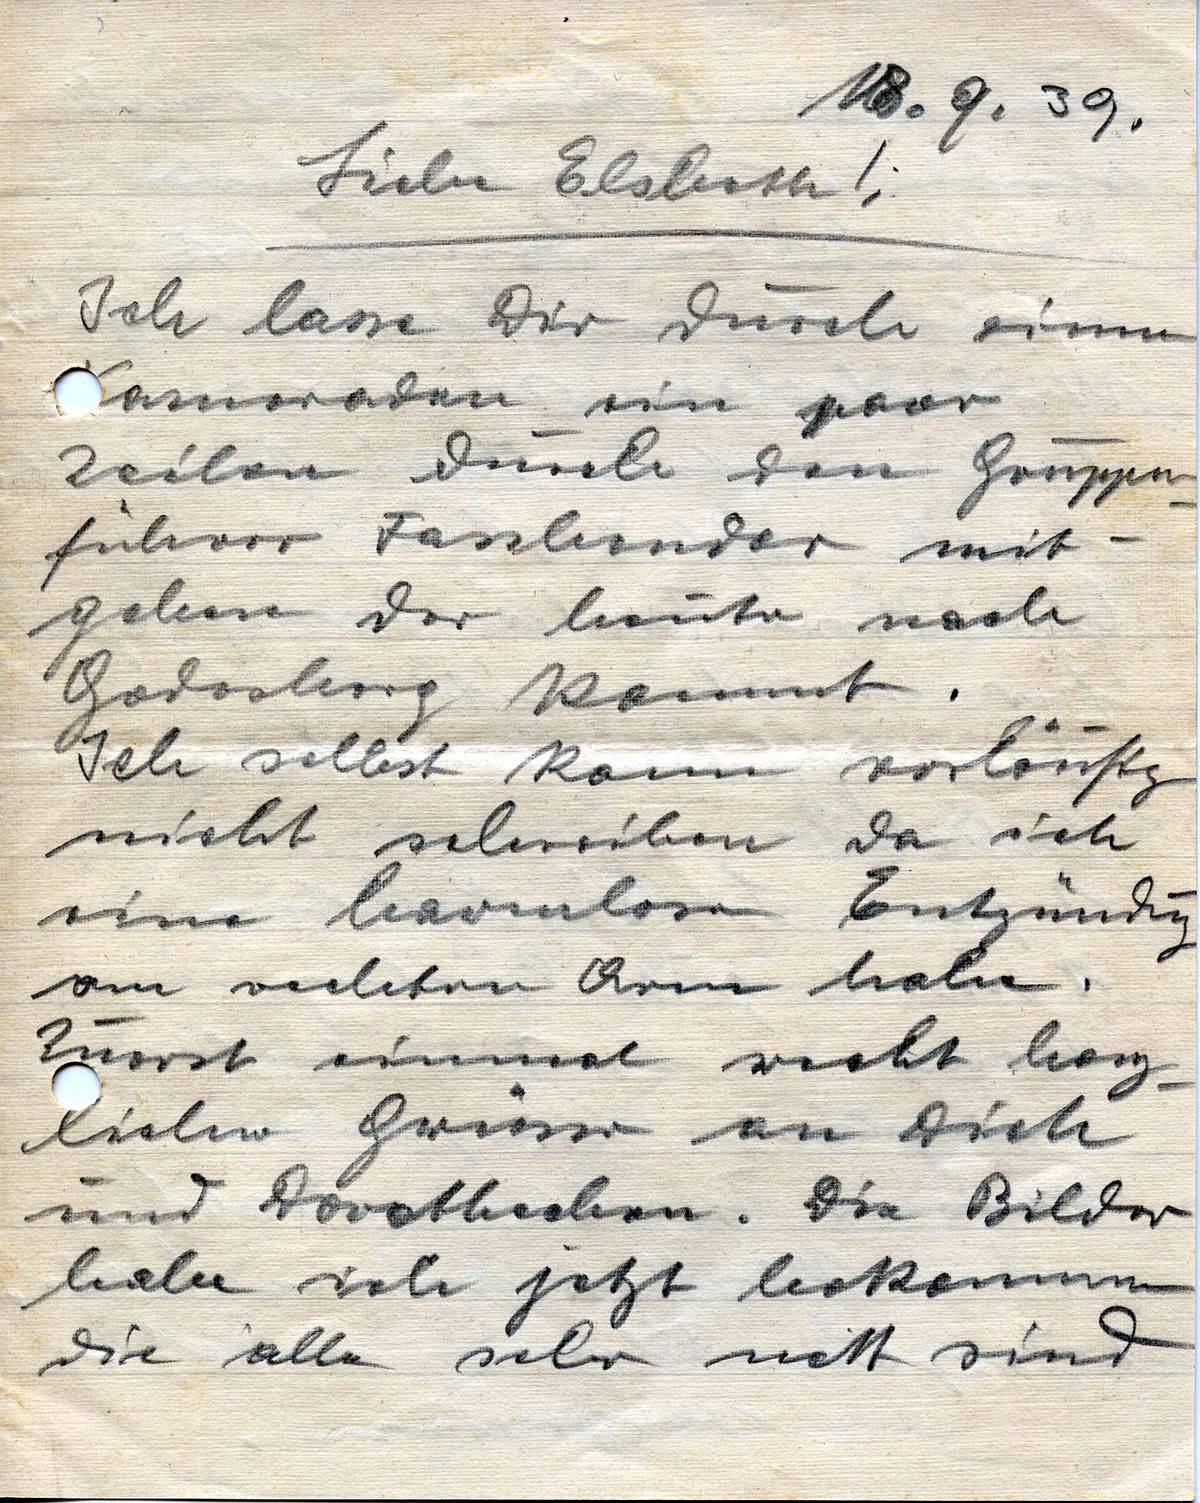 18. 9. 39.
Liebe Elsbeth!
Ich lasse Dir durch einen
Kameraden ein paar
Zeilen durch den Gruppen-
führer Fassbender mit-
geben der heute nach
Godesberg kommt.
Ich selbst kann vorläufig
nicht schreiben da ich
eine harmlose Entzündg
am rechten Arm habe.
Zuerst einmal recht herz-
liche Grüsse an Dich
und Dorothechen. Die Bilder
habe ich jetzt bekommen
die alle sehr nett sind